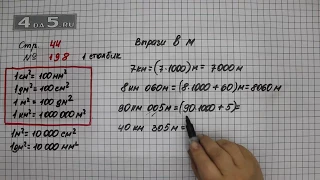 4DA5.RU
Стр 44
№ 198 1 столбик
Вправи 8 м
1 см² = 100 мм²
1 дм² = 100 см²
1 м² = 100 дм²
1 км² = 1 000 000 м²
1 м² = 10 000 см²
1 дм² = 10 000 мм²
7 км = (7·1000) м = 7000 м
8 км 060 м = (8·1000 + 60) м = 8060 м
90 км 005 м = (90·1000 + 5) =
40 км 305 м =